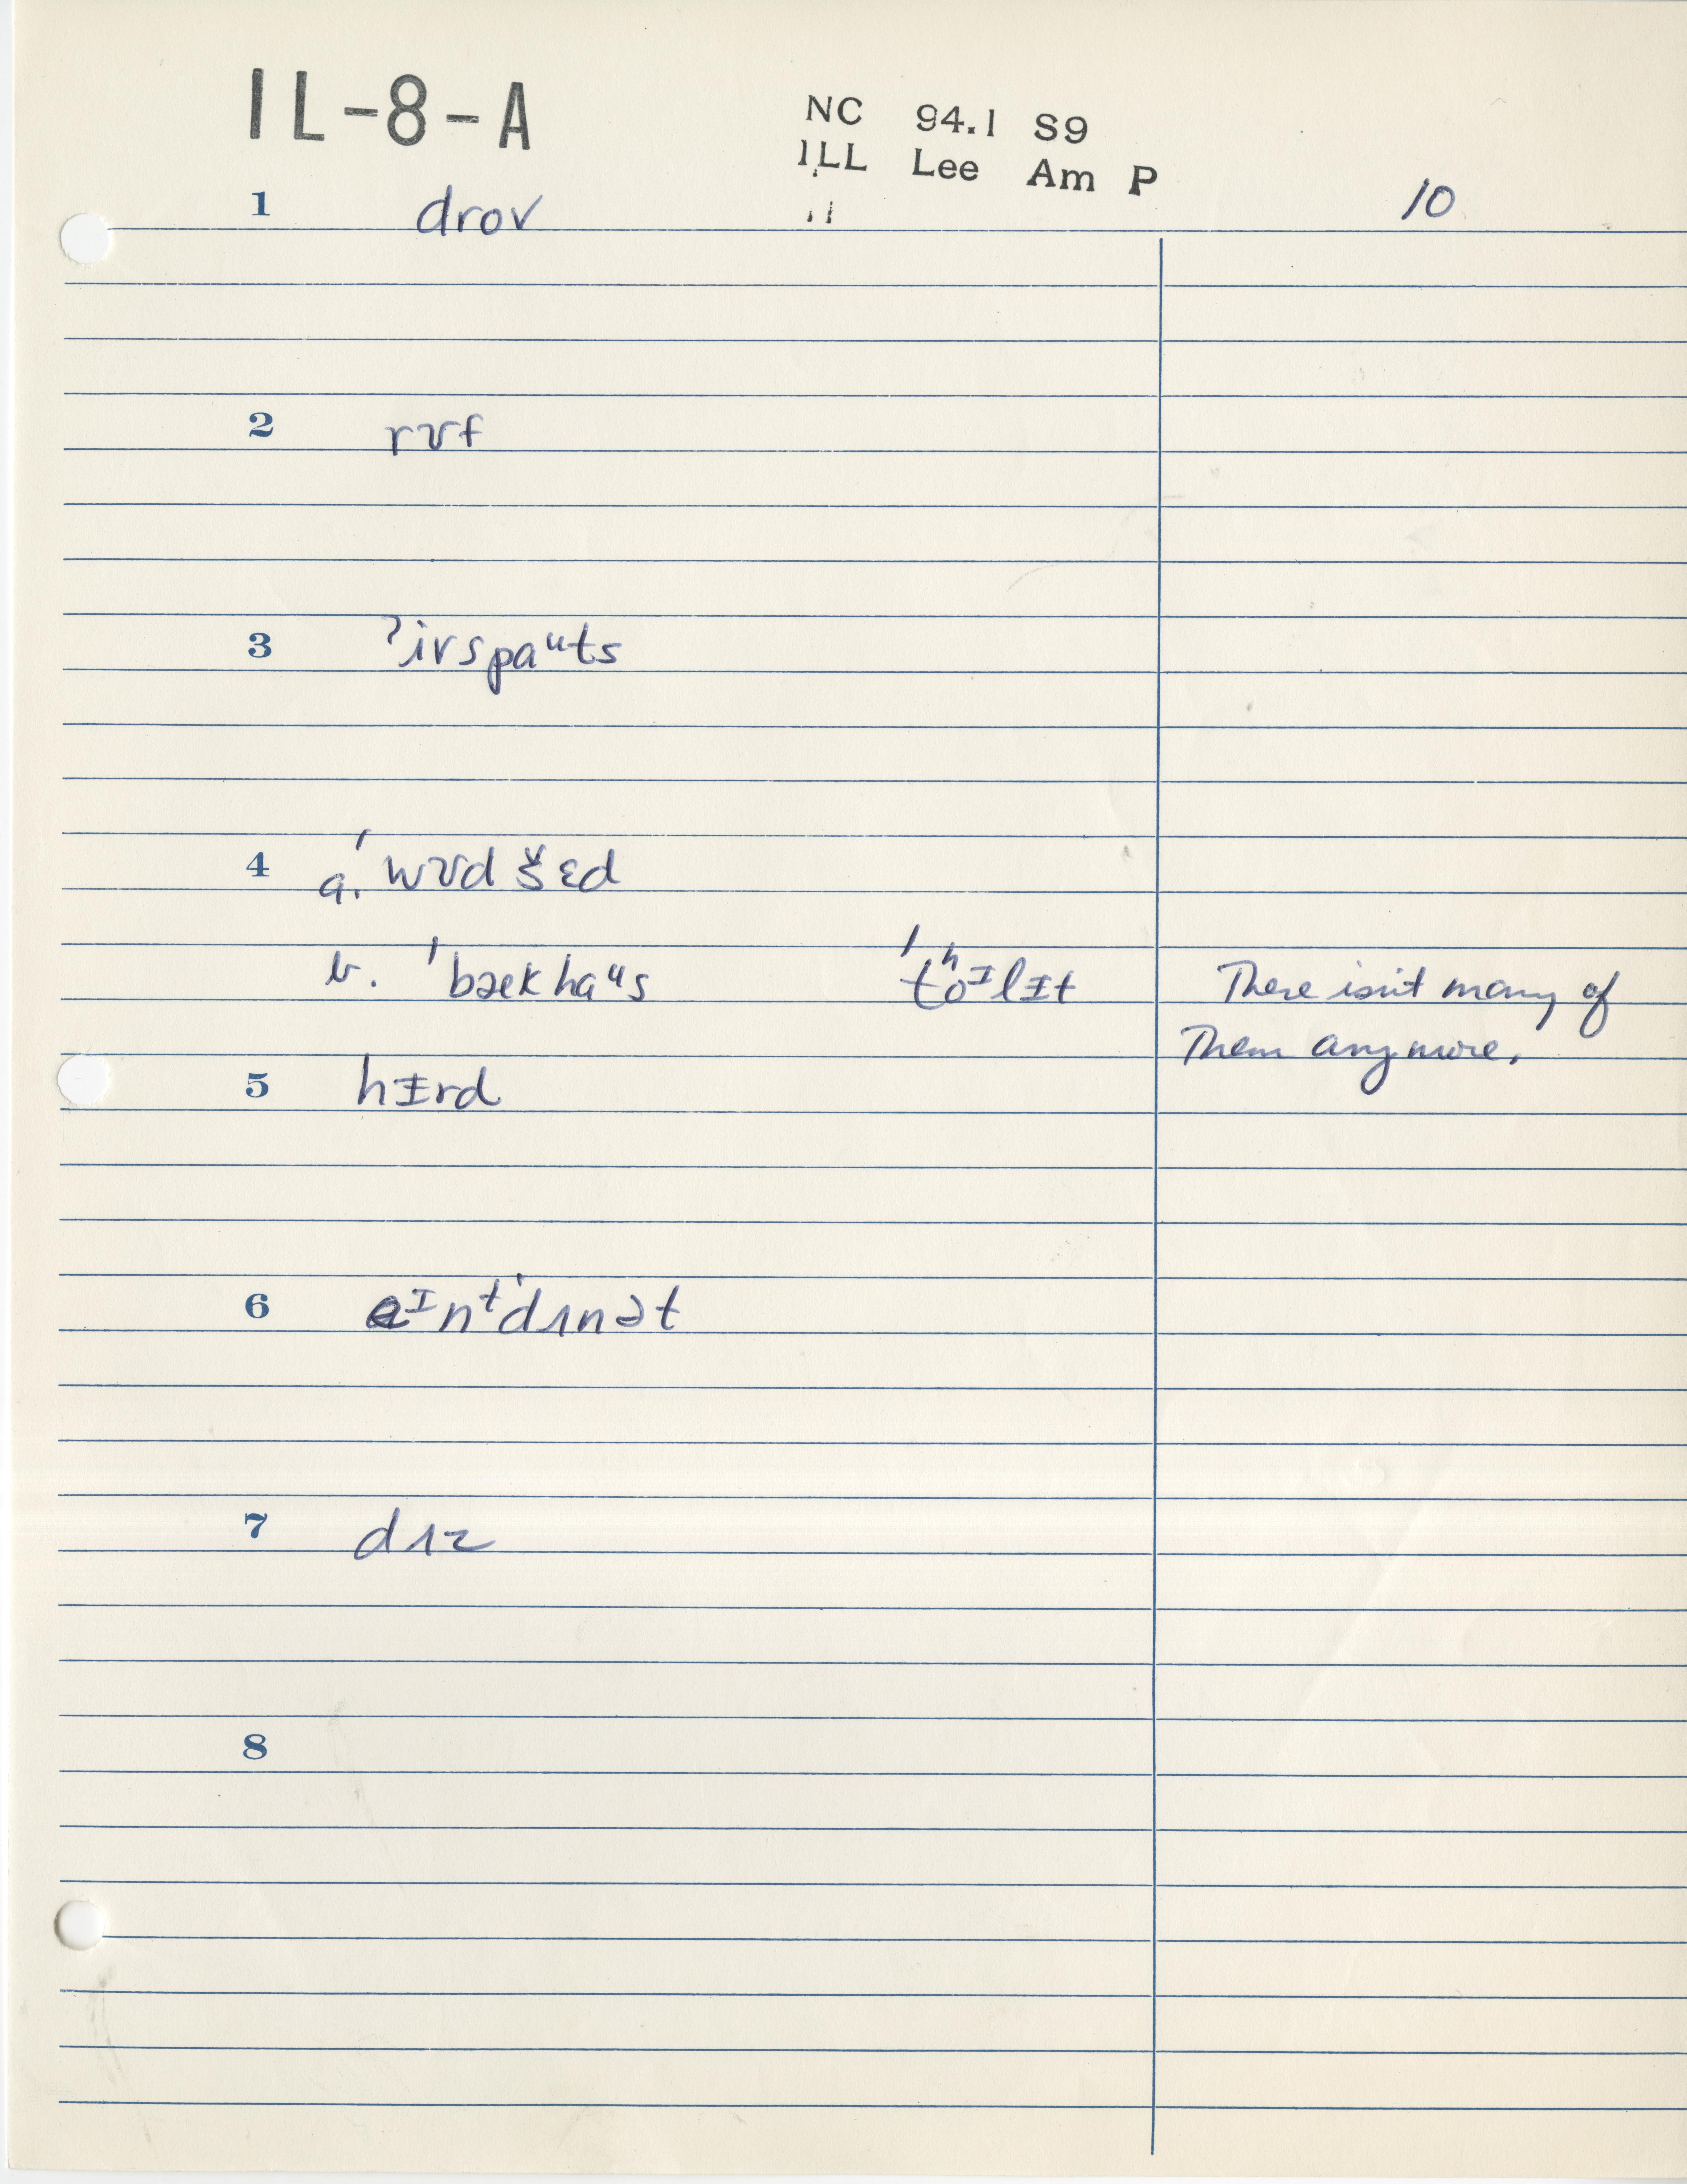 IL-8-A
NC 94.1 S9
ILL Lee Am P
10
1 drov
2 rʊf
3 ʔivspaᵘts
4 a. ˈwʊd šɛd
b. ˈbækhaᵘs ˈtʰoᶦlɪt There isn't many of
them anymore.
5 hɪrd
6 eᶦnᵗˈdʌnət
7 dʌz
8